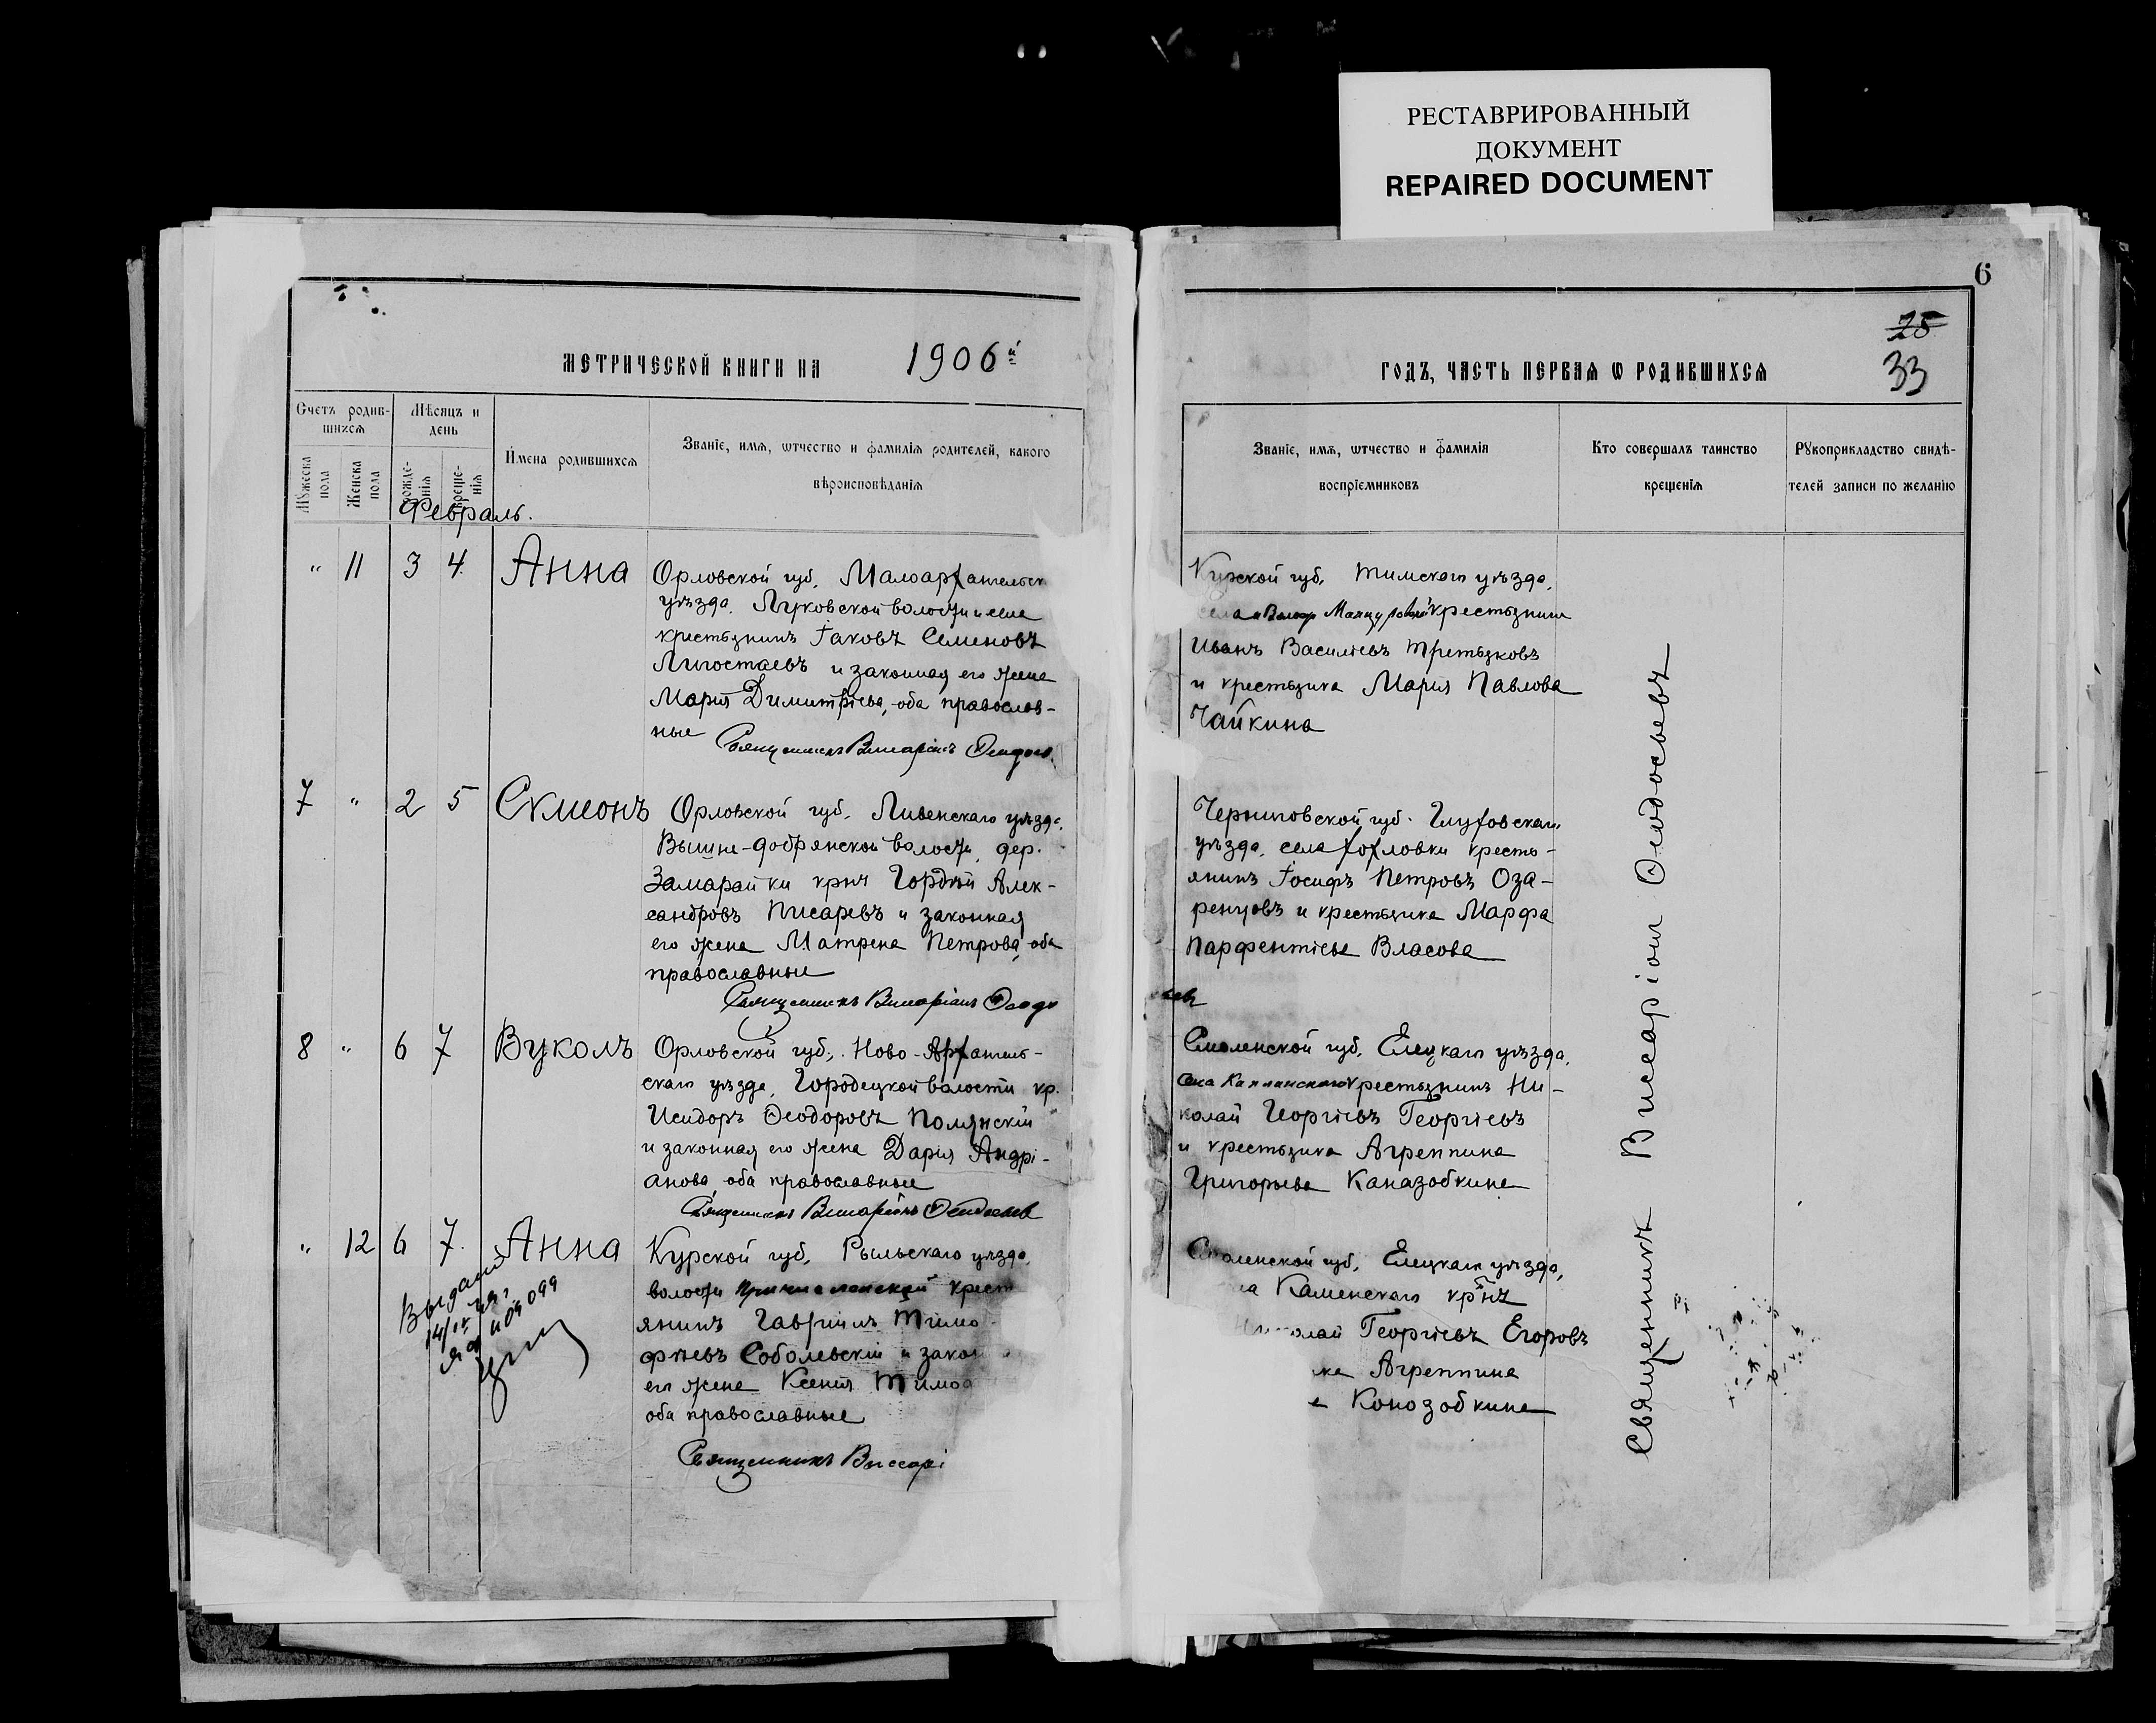 РЕСТАВРИРОВАННЫЙ
ДОКУМЕНТ
REPAIRED DOCUMENT
6
25
33
МЕТРИЧЕСКОЙ КНИГИ НА 1906й
ГОДЪ, ЧАСТЬ ПЕРВАЯ Ѡ РОДИВШИХСЯ
Счетъ родив-
шихся
Мѣсяцъ и
день
Мужеска
пола
Женска
пола
рожде-
нія
креще-
нія
Имена родившихся
Званіе, имя, ѡтчество и фамилія родителей, какого
вѣроисповѣданія
Званіе, имя, ѡтчество и фамилія
воспріемниковъ
Кто совершалъ таинство
крещенія
Рукоприкладство свидѣ-
телей записи по желанію
Февраль.
" 11 3 4. Анна
Орловской губ. Малоархангельск
уѣзда. Луковской волости и села
крестьянинъ Іаковъ Семеновъ
Лигостаевъ и законная его жена
Марія Димитріева, оба православ-
ные
Священникъ Виссаріонъ Ѳеодос.
Курской губ. Тимскаго уѣзда,
крестьянинъ
Иванъ Василіевъ Третьяковъ
и крестьянка Марія Павлова
Чайкина
7 " 2 5 Симеонъ
Орловской губ. Ливенскаго уѣзда.
Вышне-добрянской волости, дер.
Замарайки крнъ Гордѣй Алек-
сандровъ Писаревъ и законная
его жена Матрена Петрова, оба
православные
Священникъ Виссаріонъ Ѳеодо
Черниговской губ. Глуховскаго
уѣзда, села хохловки кресть-
янинъ Іосифъ Петровъ Оза-
ренцовъ и крестьянка Марфа
Парфентіева Власова
8 " 6 7 Вуколъ
Орловской губ., Ново-Архангель-
скаго уѣзда, Городецкой волости кр.
Исидоръ Ѳеодоровъ Полянскій
и законная его жена Дарія Андрі-
анова, оба православные
Священникъ Виссаріонъ Ѳеодосьев
Смоленской губ. Елецкаго уѣзда,
села крестьянинъ Ни-
колай Георгіевъ Георгіевъ
и крестьянка Агреппина
Григорьева Каназобкина
" 12 6 7. Анна
Курской губ. Рыльскаго уѣзда,
волости крест
янинъ Гавріилъ Тимо
фѣевъ Соболевскій и закон
его жена Ксенія Тимоф
оба православные
Священникъ Виссарі
Смоленской губ. Елецкаго уѣзда,
ла Каменскаго кр-нъ
Николай Георгіевъ Егоровъ
ка Агреппина
а Конозобкина
Выдана
14/IV
Священникъ Виссаріонъ Ѳеодосьевъ